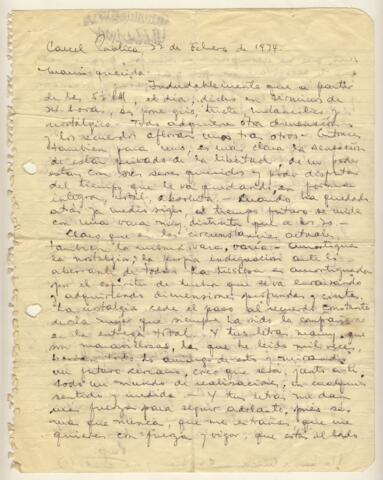 Carcel Pública, 22 de Febrero de 1974.
querida:
Indudablemente que a partir
de las 5 PM, el dia, dicho en términos de
se pone gris, triste, melancólico y
nostálgico. - Todo adquiere otra dimensión
y los recuerdos afloran unos tras otros. - Entonces
también para uno, es más clara la sensación
de estar privado de la libertad, de no poder
estar con los seres queridos y poder disfrutar
del tiempo que le va quedando, en forma
integra, total, absoluta. - Cuando ha quedado
atrás ya medio siglo, el tiempo futuro se mide
con una vara muy distinta
Claro que en las circunstancias actuales
también la misma vara, varía. -
la nostalgia, la propia indignación ante lo
aberrante de todo. La tristeza es amortiguada
por el espíritu de lucha que se va enraizando
y adquiriendo dimensiones profundas y ciertas.
La nostalgia cede el paso al recuerdo constante
de la mujer que siempre ha sido la compañera
en la entrega total. - Y tus letras
son maravillosas, las que he leido mil veces.
un futuro cercano, creo que será, junto a ti,
todo un mundo de realizaciones, en cualquier
sentido y medida. - Y tus letras me dan
más fuerzas para seguir adelante, pues sé,
más que nunca, que me extrañas, que me
quieres con fuerza y vigor, que estás al lado